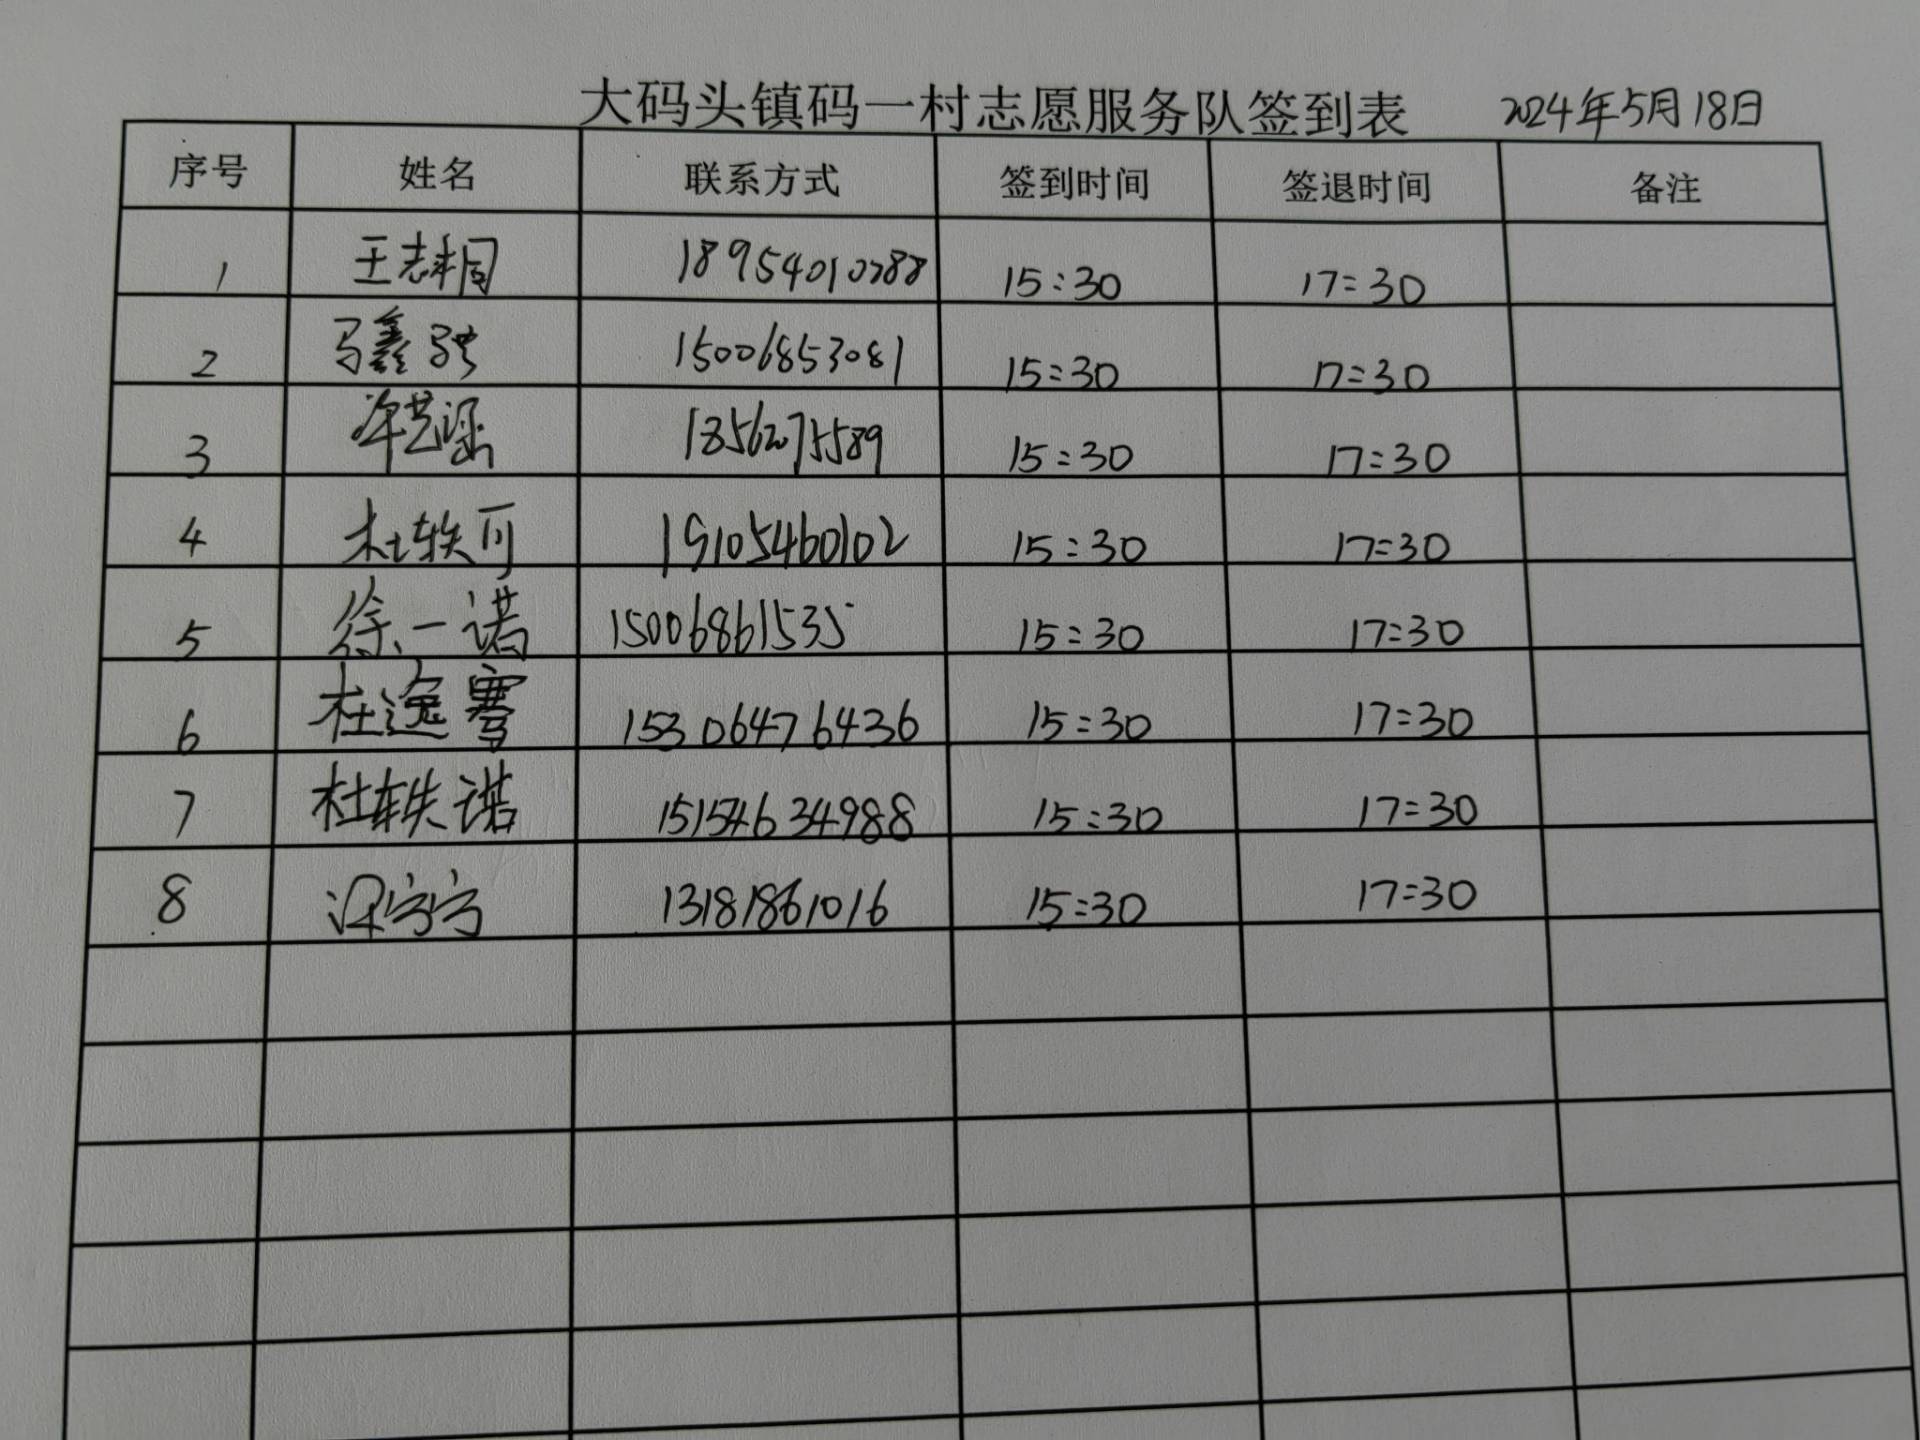 大码头镇码一村志愿服务队签到表 2024年5月18日
序号 姓名 联系方式 签到时间 签退时间 备注
1 王志桐 18954010788 15:30 17:30
2 马鑫 15006853081 15:30 17:30
3 艺涵 18562075589 15:30 17:30
4 杜轶可 15105460102 15:30 17:30
5 徐一诺 15006861535 15:30 17:30
6 杜逸骞 15306476436 15:30 17:30
7 杜轶诺 15154634988 15:30 17:30
8 13181861016 15:30 17:30